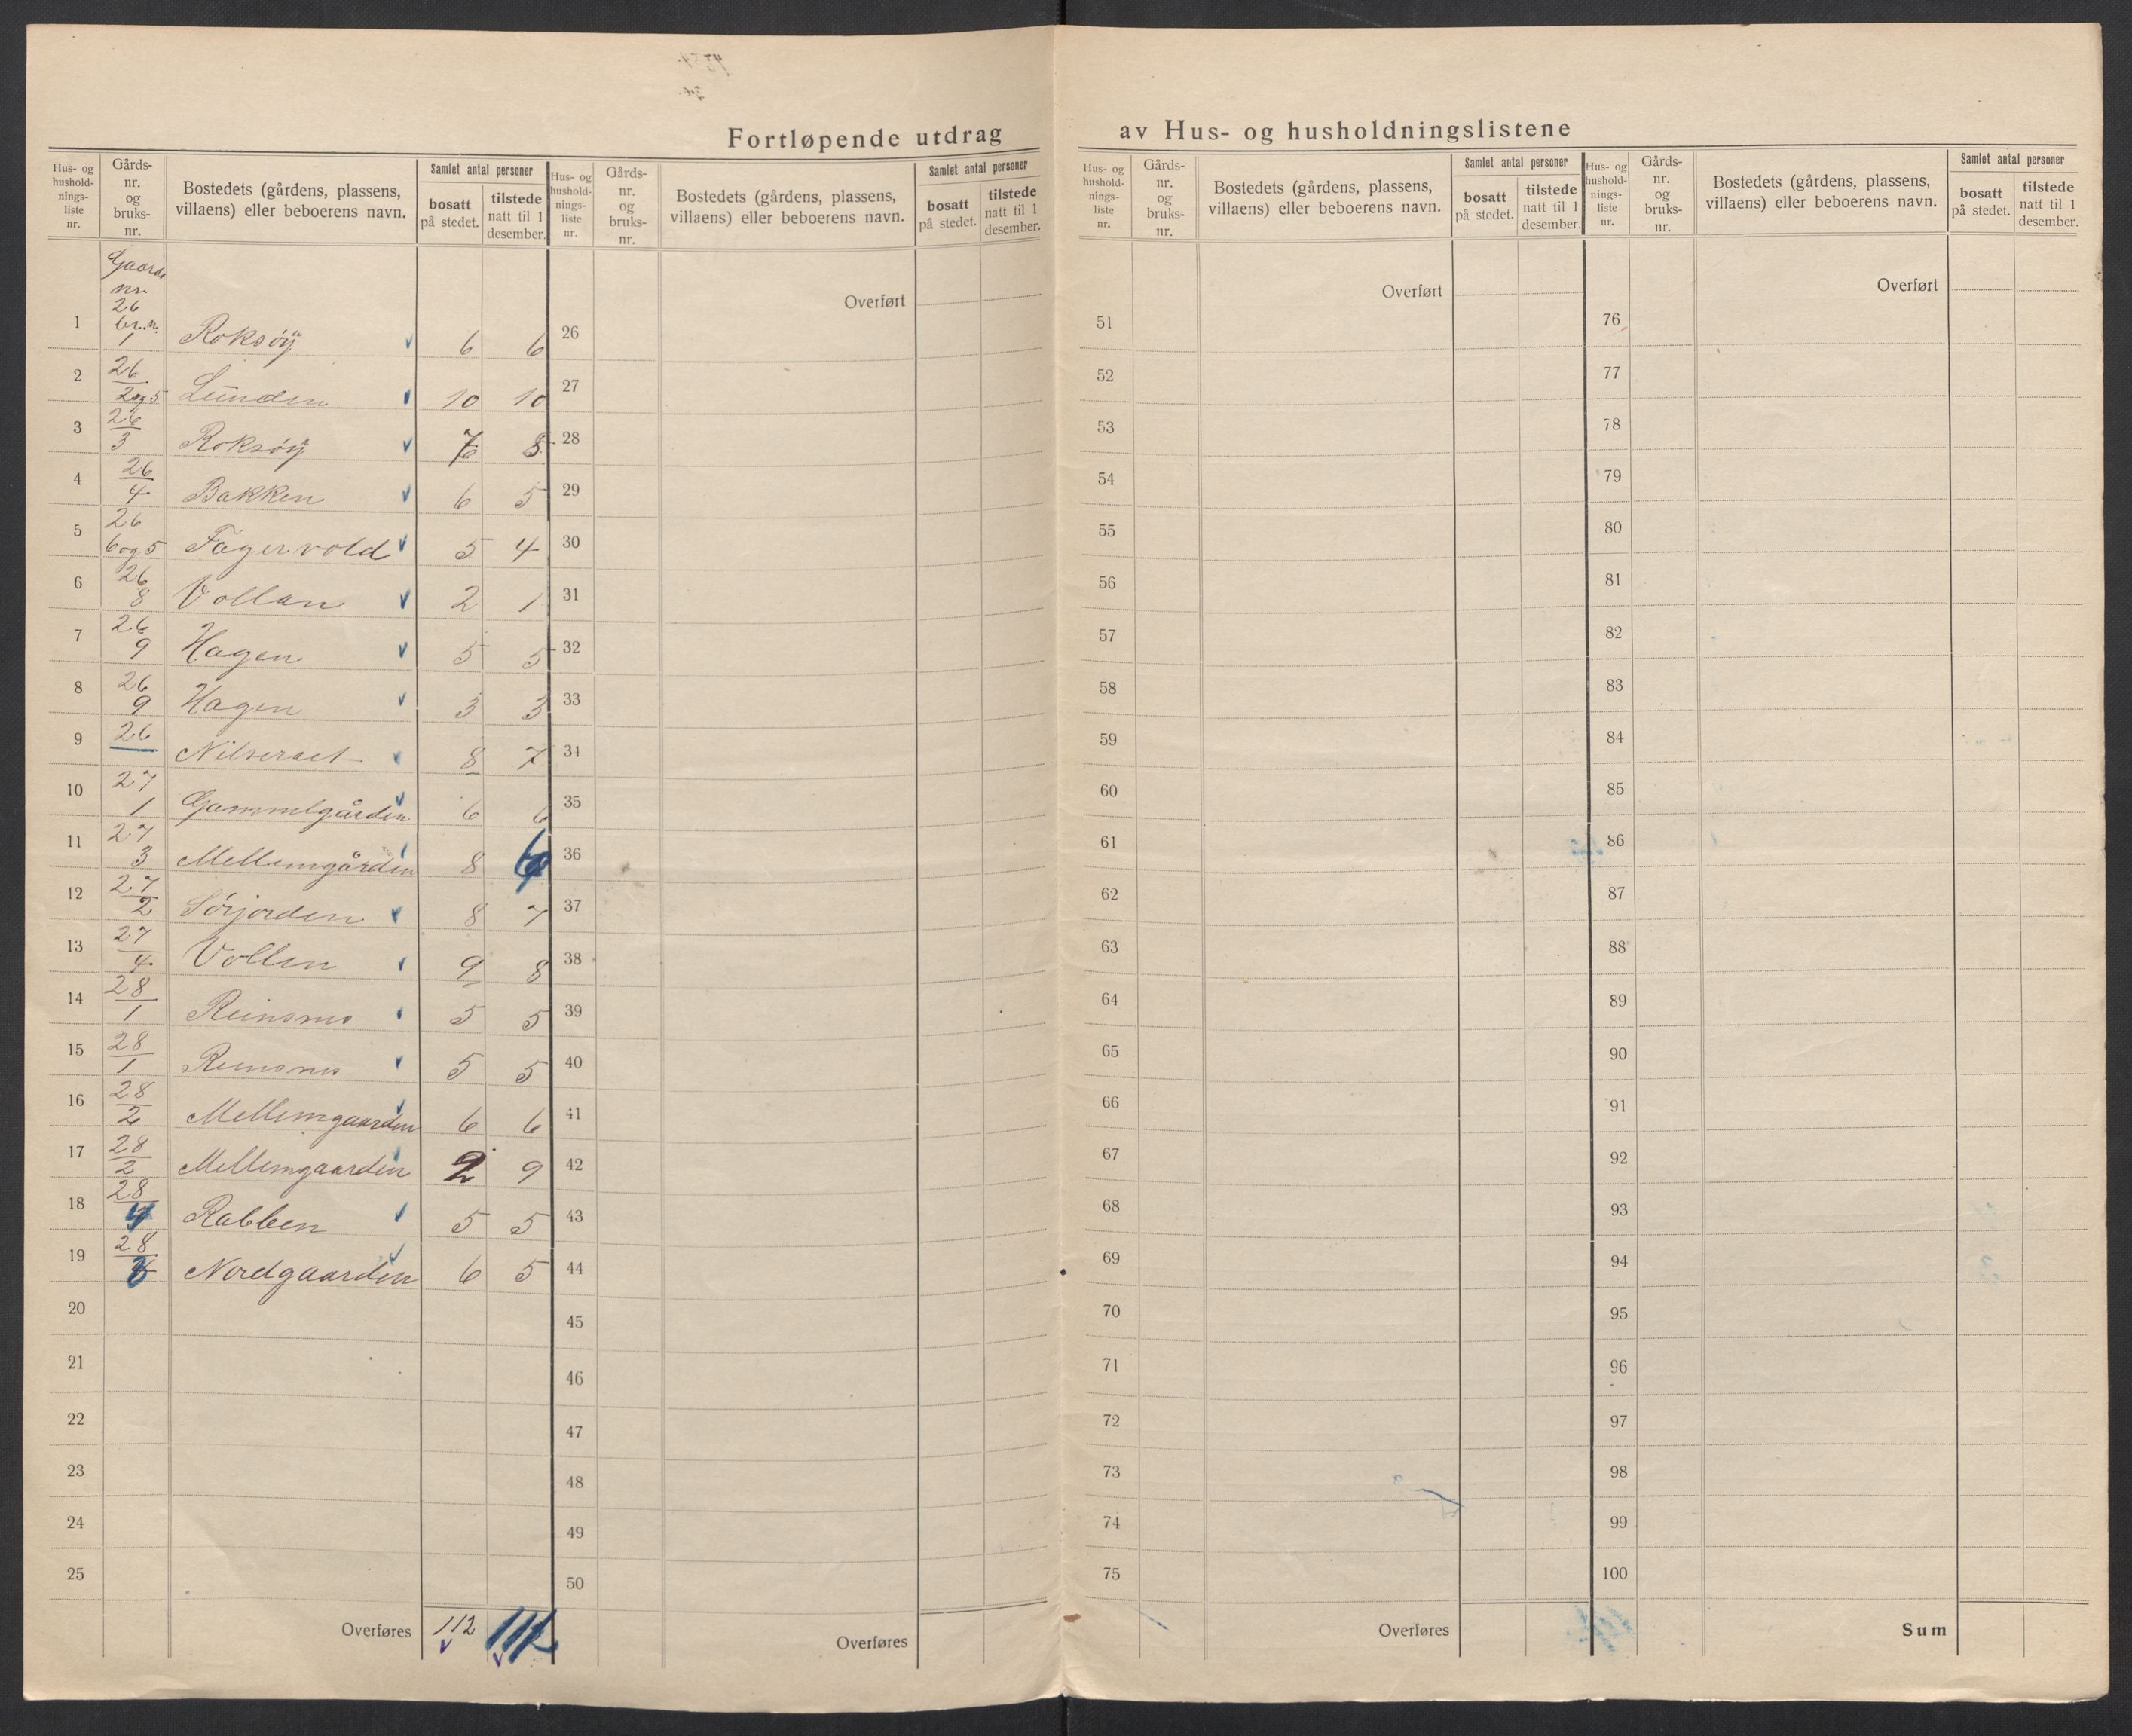 Fortløpende utdrag av Hus- og husholdningslistene
Hus- og hushold-nings-liste nr. Gårds-nr. og bruks-nr. Bostedets (gårdens, plassens, villaens) eller beboerens navn. Samlet antal personer bosatt på stedet. tilstede natt til 1 desember.
Hus- og hushold-nings-liste nr. Gårds-nr. og bruks-nr. Bostedets (gårdens, plassens, villaens) eller beboerens navn. Samlet antal personer bosatt på stedet. tilstede natt til 1 desember.
Hus- og hushold-nings-liste nr. Gårds-nr. og bruks-nr. Bostedets (gårdens, plassens, villaens) eller beboerens navn. Samlet antal personer bosatt på stedet. tilstede natt til 1 desember.
Hus- og hushold-nings-liste nr. Gårds-nr. og bruks-nr. Bostedets (gårdens, plassens, villaens) eller beboerens navn. Samlet antal personer bosatt på stedet. tilstede natt til 1 desember.
Gaards nr.
26
br.n.
1 1 Roksöÿ 6 6
2 26 2og5 Lunden 10 10
3 26 3 Roksöÿ 8
4 26 4 Bakken 6 5
5 26 6og5 Fagervold 5 4
6 26 8 Vollan 2 1
7 26 9 Hagen 5 5
8 26 9 Hagen 3 3
9 26 8 7
10 27 1 Gammelgården 6 6
11 27 3 Mellemgården 8
12 27 2 Sörjorden 8 7
13 27 4 Vollen 9 8
14 28 1 Reinsnes 5 5
15 28 1 Reinsnes 5 5
16 28 2 Mellemgaarden 6 6
17 28 2 Mellemgaarden 2 9
18 28 4 Rabben 5 5
19 28 3 Nordgaarden 6 5
20
21
22
23
24
25
Overføres 112
Overført
26
27
28
29
30
31
32
33
34
35
36
37
38
39
40
41
42
43
44
45
46
47
48
49
50
Overføres
Overført
51
52
53
54
55
56
57
58
59
60
61
62
63
64
65
66
67
68
69
70
71
72
73
74
75
Overføres
Overført
76
77
78
79
80
81
82
83
84
85
86
87
88
89
90
91
92
93
94
95
96
97
98
99
100
Sum